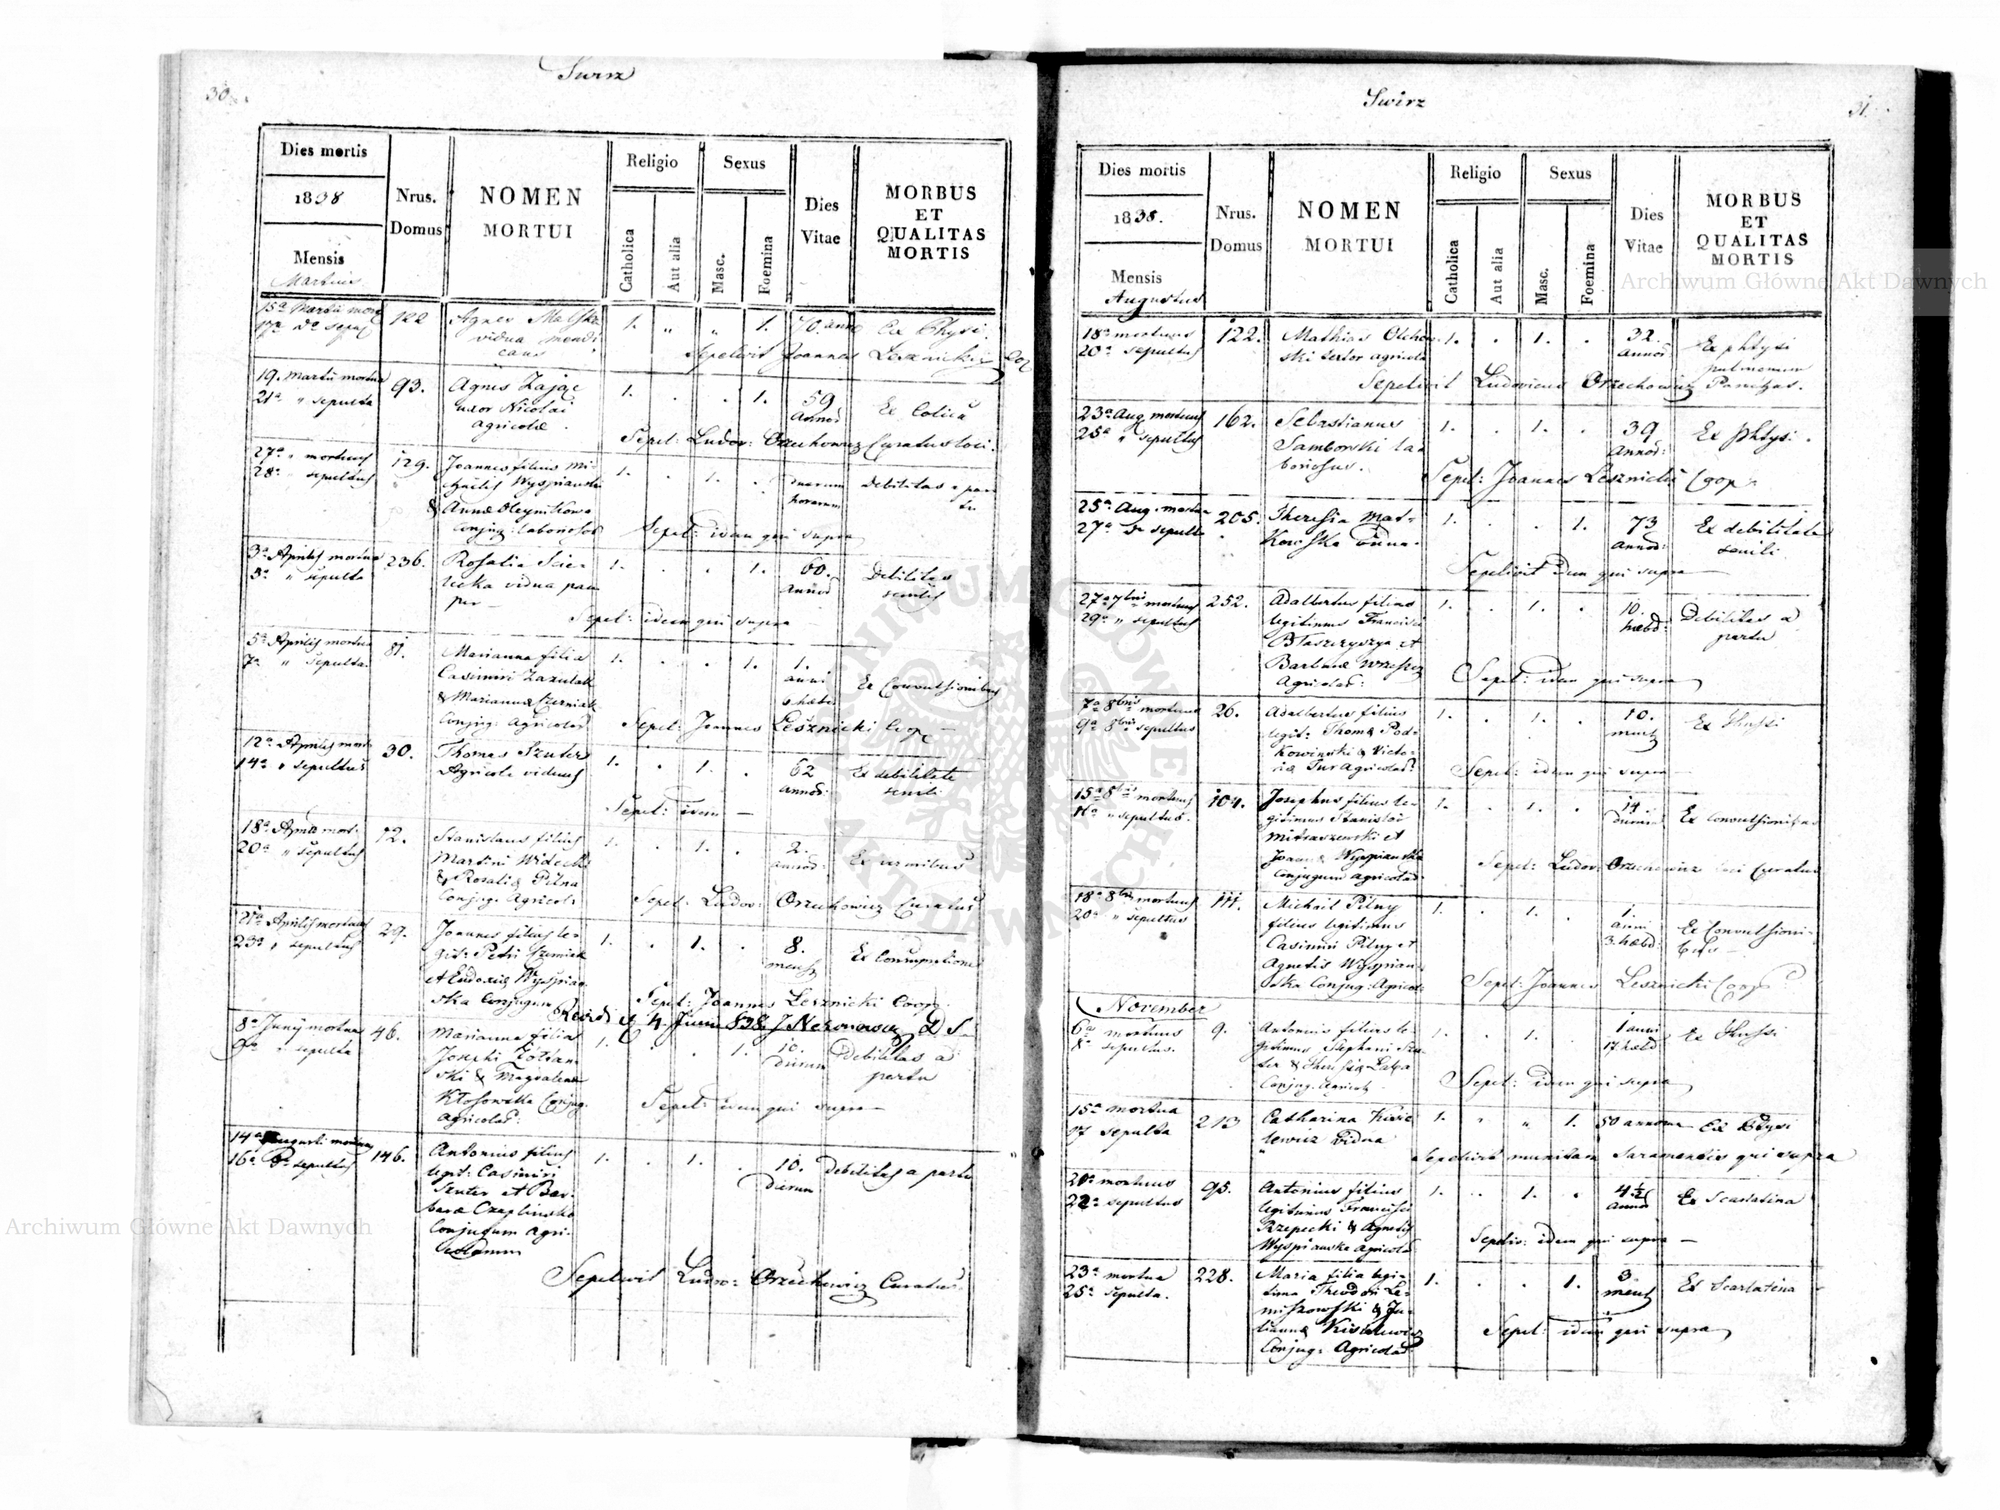 Swirz
30
Dies mortis
1838
Mensis
Martius
Nrus.
Domus
NOMEN
MORTUI
Religio
Catholica
Aut alia
Sexus
Masc.
Foemina
Dies
Vitae
MORBUS
ET
QUALITAS
MORTIS
15a Martii
122
Agnes
vidua mendi
cans
1. „ „ 1.
70.
Ex Phtysi.
Sepelivit Joannes Lesznicki
19. Martii mortua
21a „ sepulta
93.
Agnes Zając
uxor Nicolai
agricolae.
1. . . 1.
59
Annor
Ex Colica
Sepel: Ludov: Orzechowicz Curatus loci.
27a „ mortuus
28a „ sepultus
129.
Joannes filius Mi-
chaelis Wyspianski
& Annae Oleynikowa
conjug: laboriosor
1. . 1. .
duarum
horarum
debilitas a par
tu
Sepel: idem qui supra
3a Aprilis mortua
5a „ sepulta
236.
Rosalia
vidua pau
per
1. . . 1.
60.
annor
Debilitas
senilis
Sepel: idem qui supra
5a Aprilis mortua
7a „ sepulta
81.
Marianna filia
Casimiri Zazulak
& Marianna Czerniak
Conjug: agricolar
1. . . 1.
1.
anni
6 hebd
Ex Convulsionibus
Sepel: Joannes Lesznicki Coop
12a Aprilis mort
14a „ sepultus
30.
Thomas Szuter
Agricola viduus
1. . 1. .
62
annor:
Ex debilitate
senili
Sepel: idem —
18a Aprilis mort.
20a „ sepultus
12.
Stanislaus filius
Martini
& Rosalia Pilna
Conjug: Agricol:
1. . 1. .
2.
annor:
Ex vermibus
Sepel: Ludov: Orzechowicz Curatus
21a Aprilis mortuus
23a „ sepultus
29.
Joannes filius le-
git: Petri
et Eudoxiae Wyspian
ska Conjugum
1. . 1. .
8.
mens
Ex Consumptione
Sepel: Joannes Lesznicki Coop.
4. Junii 838 J
8a Junij mortua
9a „ sepulta
46.
Marianna filia
Josephi
ski & Magdalena
Kłosowska Conjug.
agricolar:
1. . . 1.
10.
Dierum
Debilitas a
partu
Sepel: idem qui supra —
14a Augusti mortuus
16a do sepultus
146.
Antonius filius
legit: Casimiri
Szuter et Bar-
bara Czaplinska
Conjugum agri-
colarum
1. . 1. .
10.
Dierum
Debilitas a partu
Sepelivit Ludov: Orzechowicz Curatus
Swirz
31
Dies mortis
1838.
Mensis
Augustus
Nrus.
Domus
NOMEN
MORTUI
Religio
Catholica
Aut alia
Sexus
Masc.
Foemina
Dies
Vitae
MORBUS
ET
QUALITAS
MORTIS
18a mortuus
20a sepultus
122.
Mathias Olchow
ski sartor agricola
1. . 1. .
32.
annor
Ex phtysi
pulmonum
Sepelivit Ludovicus Orzechowicz
23a Aug. mortuus
25a „ sepultus
162.
Sebastianus
Samborski la-
boriosus.
1. . 1. .
39
Annor:
Ex phtysi.
Sepel: Joannes Lesznicki Coop
25a Aug. mortua
27a do sepulta
205.
Theresia Mat-
kowska vidua.
1. . . 1.
73
annor:
Ex debilitate
senili
Sepelivit idem qui supra —
27a 7bris mortuus
29a „ sepultus
252.
Adalbertus filius
legitimus Francisci
Błaszczyszyn et
Barbara
Agricolar:
1. . 1. .
10.
hæbd:
Debilitas a
partu
Sepel: idem qui supra
7a 8bris mortuus
9a 8bris sepultus
26.
Adalbertus filius
legit: Thoma Pod-
kowinski & Victo-
ria Tur agricolar:
1. . 1. .
10.
mens
Ex tussi
Sepel: idem qui supra —
15a 8bris mortuus
„ sepultus.
104.
Josephus filius le-
gitimus Stanislai
et
Joanna Wyspianska
Conjugum agricolar
1. . 1. .
14.
Dierum
Ex Convulsionibus
Sepel: Ludov: Orzechowicz loci Curatus
18a 8bris mortuus
20a „ sepultus
111.
Michael Pilny
filius legitimus
Casimiri Pilny et
Agnetis Wyspian-
ska Conjug: Agricol
1. . 1. .
1.
anni
3. hebd
Ex Convulsioni-
bus —
Sepel: Joannes Lesznicki Coop
November
6a mortuus
8a sepultus.
9.
Antonius filius le-
gitimus Stephani Szu-
ter & Theresia
Conjug. Agricol.
1. . 1. .
1 anni
17. hebd
Ex tussi
Sepel: idem qui supra
15a mortua
17 sepulta
213
Catharina Kisie
lewicz vidua
1. „ „ 1.
50 annorum
Ex Phtysi
Sepelivit munitam Sacramentis qui supra
20a mortuus
22a sepultus
95.
Antonius filius
legitimus Francisci
Rzepecki & Agnetis
Wyspianska agricolar
1. . 1. .
4 1/2
annor
Ex Scarlatina
Sepeliv: idem qui supra —
23a mortua
25a sepulta.
228.
Maria filia legi-
tima Theodori Le-
miszowski & Ju-
lianna Kisielewicz
Conjug: Agricolar
1. . . 1.
3.
mens
Ex Scarlatina
Sepel: idem qui supra
Archiwum Główne Akt Dawnych
Archiwum Główne Akt Dawnych
ARCHIWUM GŁÓWNE AKT DAWNYCH